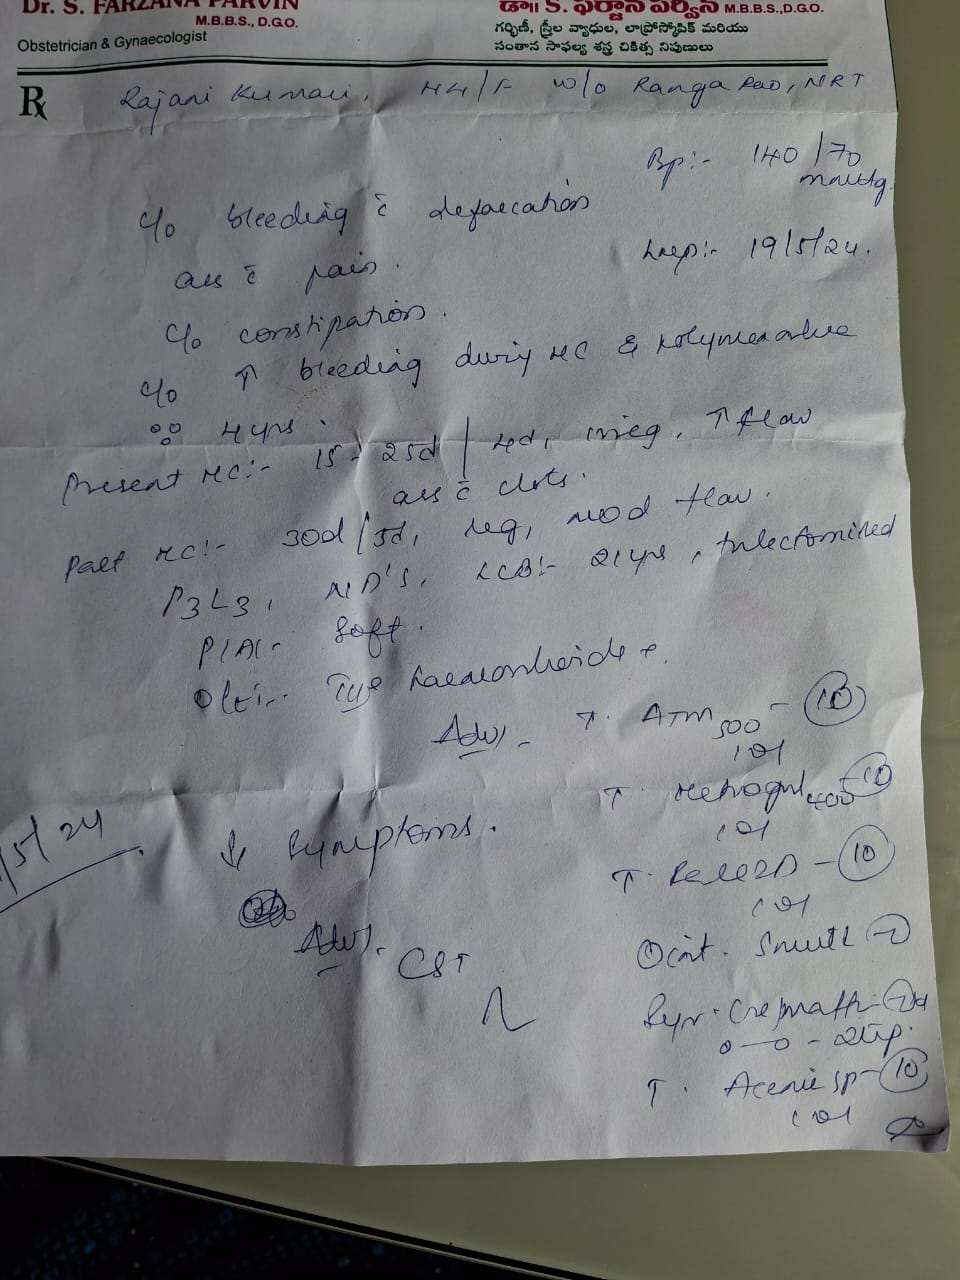 Dr. S. FARZANA PARVIN
M.B.B.S., D.G.O.
Obstetrician & Gynaecologist
డా॥ S. ఫర్జానా పర్వీన్ M.B.B.S.,D.G.O.
గర్భిణీ, స్త్రీల వ్యాధుల, లాప్రోస్కోపిక్ మరియు
సంతాన సాఫల్య శస్త్ర చికిత్స నిపుణులు
Rx
Rajani Kumari, 44/F W/o Ranga Rao, NRT
Bp:- 140/70
mmHg.
c/o bleeding c̄ defaecation
ass c̄ pain.
Lmp:- 19/5/24.
c/o constipation.
c/o ↑ bleeding during MC &
4 yrs
Present MC:- 15 - 25d / 4d, irreg, ↑ flow
ass c̄ clots.
Past MC:- 30d/5d, reg, mod flow.
P3L3, ND's, LCB:- 21 yrs, tubectomised
P/A:- Soft.
O/E:- haemorrhoids +.
Adv/- T. ATM 500 - 10
1 0 1
T. Metrogyl 400 - 10
1 0 1
/5/24
↓ Symptoms.
T. - 10
1 0 1
Adv/- CST
Oint. Smuth
Syr. Cremaffin
0-0-2tsp.
T. SP - 10
1 0 1